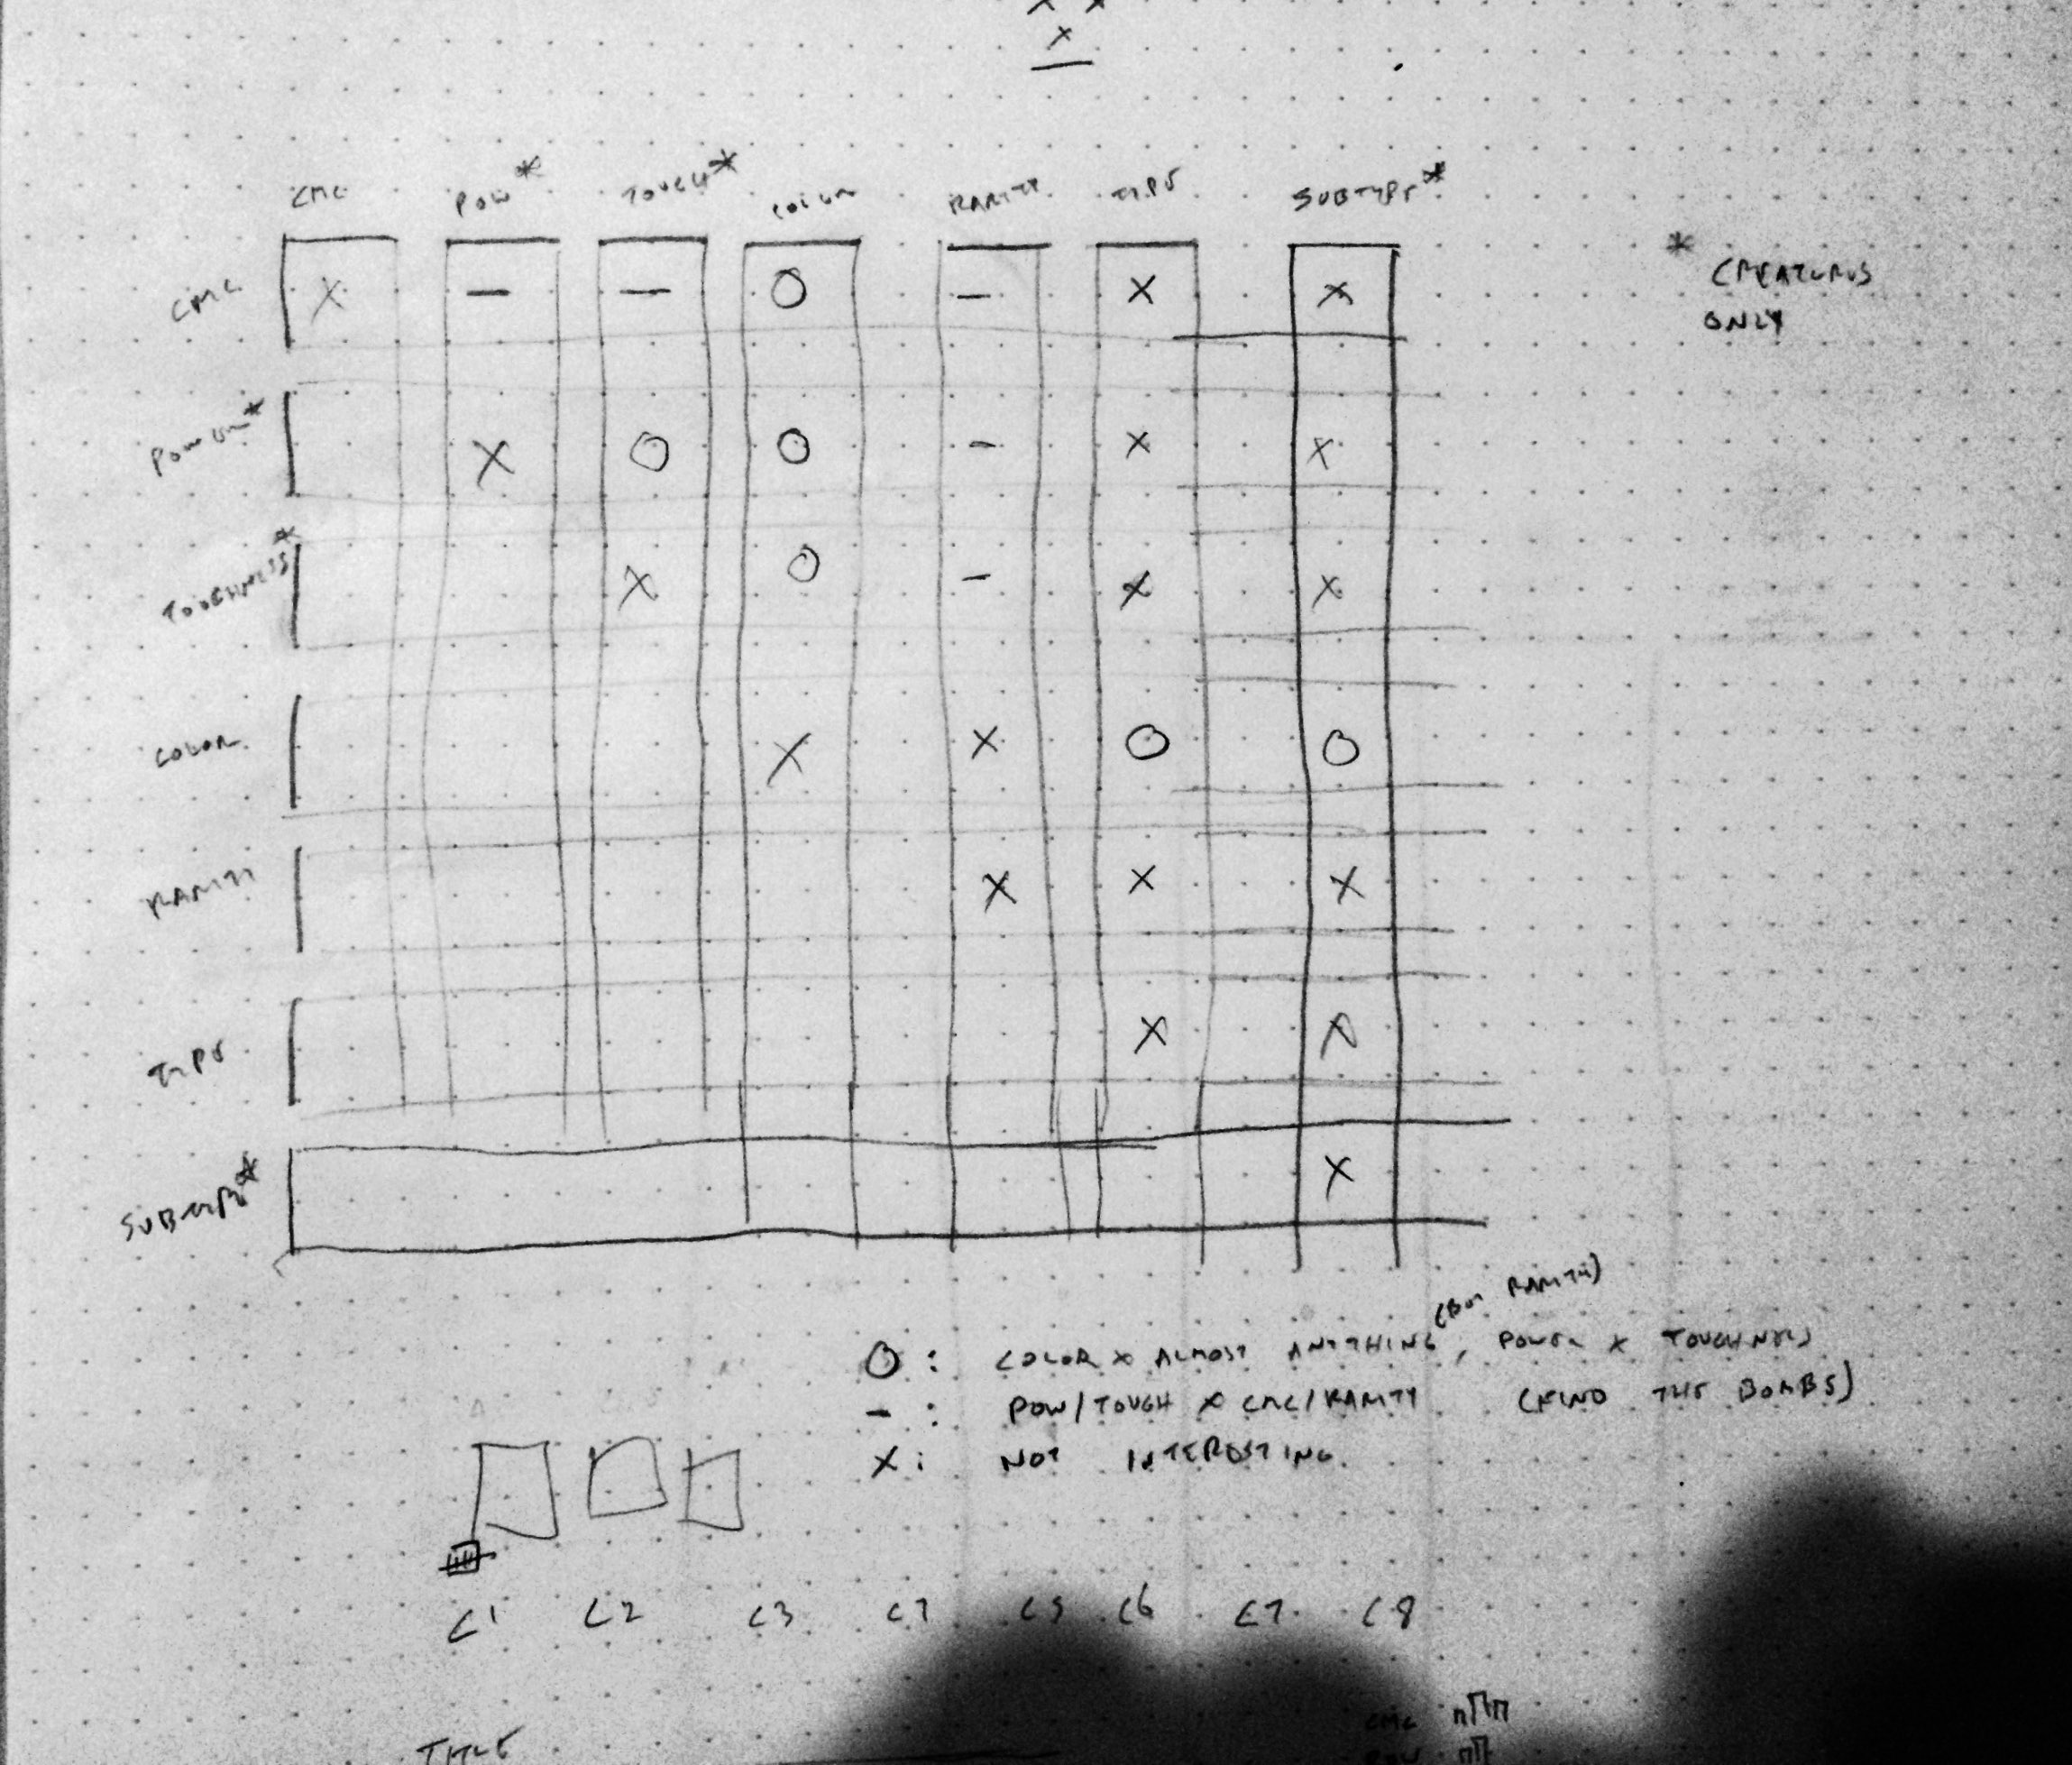 X X
X
CMC POW* TOUGH* COLOR RARITY TYPE SUBTYPE*
* CREATURES
ONLY
CMC X — — O — X X
POWER* X O O — X X
TOUGHNESS* X O — X X
COLOR X X O O
RARITY X X X
TYPE X X
SUBTYPE* X
(BUT RARITY)
O : COLOR X ALMOST ANYTHING, POWER X TOUGHNESS
— : POW/TOUGH X CMC/RARITY (FIND THE BOMBS)
X : NOT INTERESTING
C1 C2 C3 C5 C6 C7 C8
CMC
TITLE POW